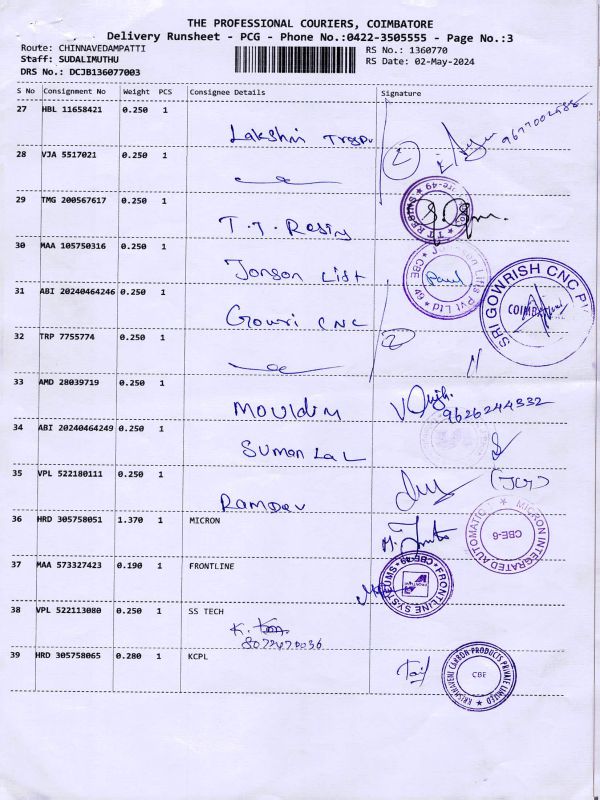 THE PROFESSIONAL COURIERS, COIMBATORE
Delivery Runsheet - PCG - Phone No.:0422-3505555 - Page No.:3
Route: CHINNAVEDAMPATTI
RS No.: 1360770
Staff: SUDALIMUTHU
RS Date: 02-May-2024
DRS No.: DCJB136077003
S No Consignment No Weight PCS Consignee Details Signature
27 HBL 11658421 0.250 1 Lakshmi
28 VJA 5517021 0.250 1
29 TMG 200567617 0.250 1 T.T. Resins
T T RESINS
30 MAA 105750316 0.250 1 Jonson Lift
Paul
Lifts Pvt Ltd CBE 49
31 ABI 20240464246 0.250 1 Gowri CNC
SRI GOWRISH CNC
32 TRP 7755774 0.250 1 2
33 AMD 28039719 0.250 1 Mouldin 9626244332
34 ABI 20240464249 0.250 1 Suman Lal
35 VPL 522180111 0.250 1 Ramdev
36 HRD 305758051 1.370 1 MICRON
MICRON INTEGRATED AUTOMATIC CBE-6
37 MAA 573327423 0.190 1 FRONTLINE
FRONTLINE SYSTEMS CBE-49
38 VPL 522113080 0.250 1 SS TECH
39 HRD 305758065 0.280 1 KCPL
KRISHNAVENI CARBON PRODUCTS PRIVATE LIMITED CBE